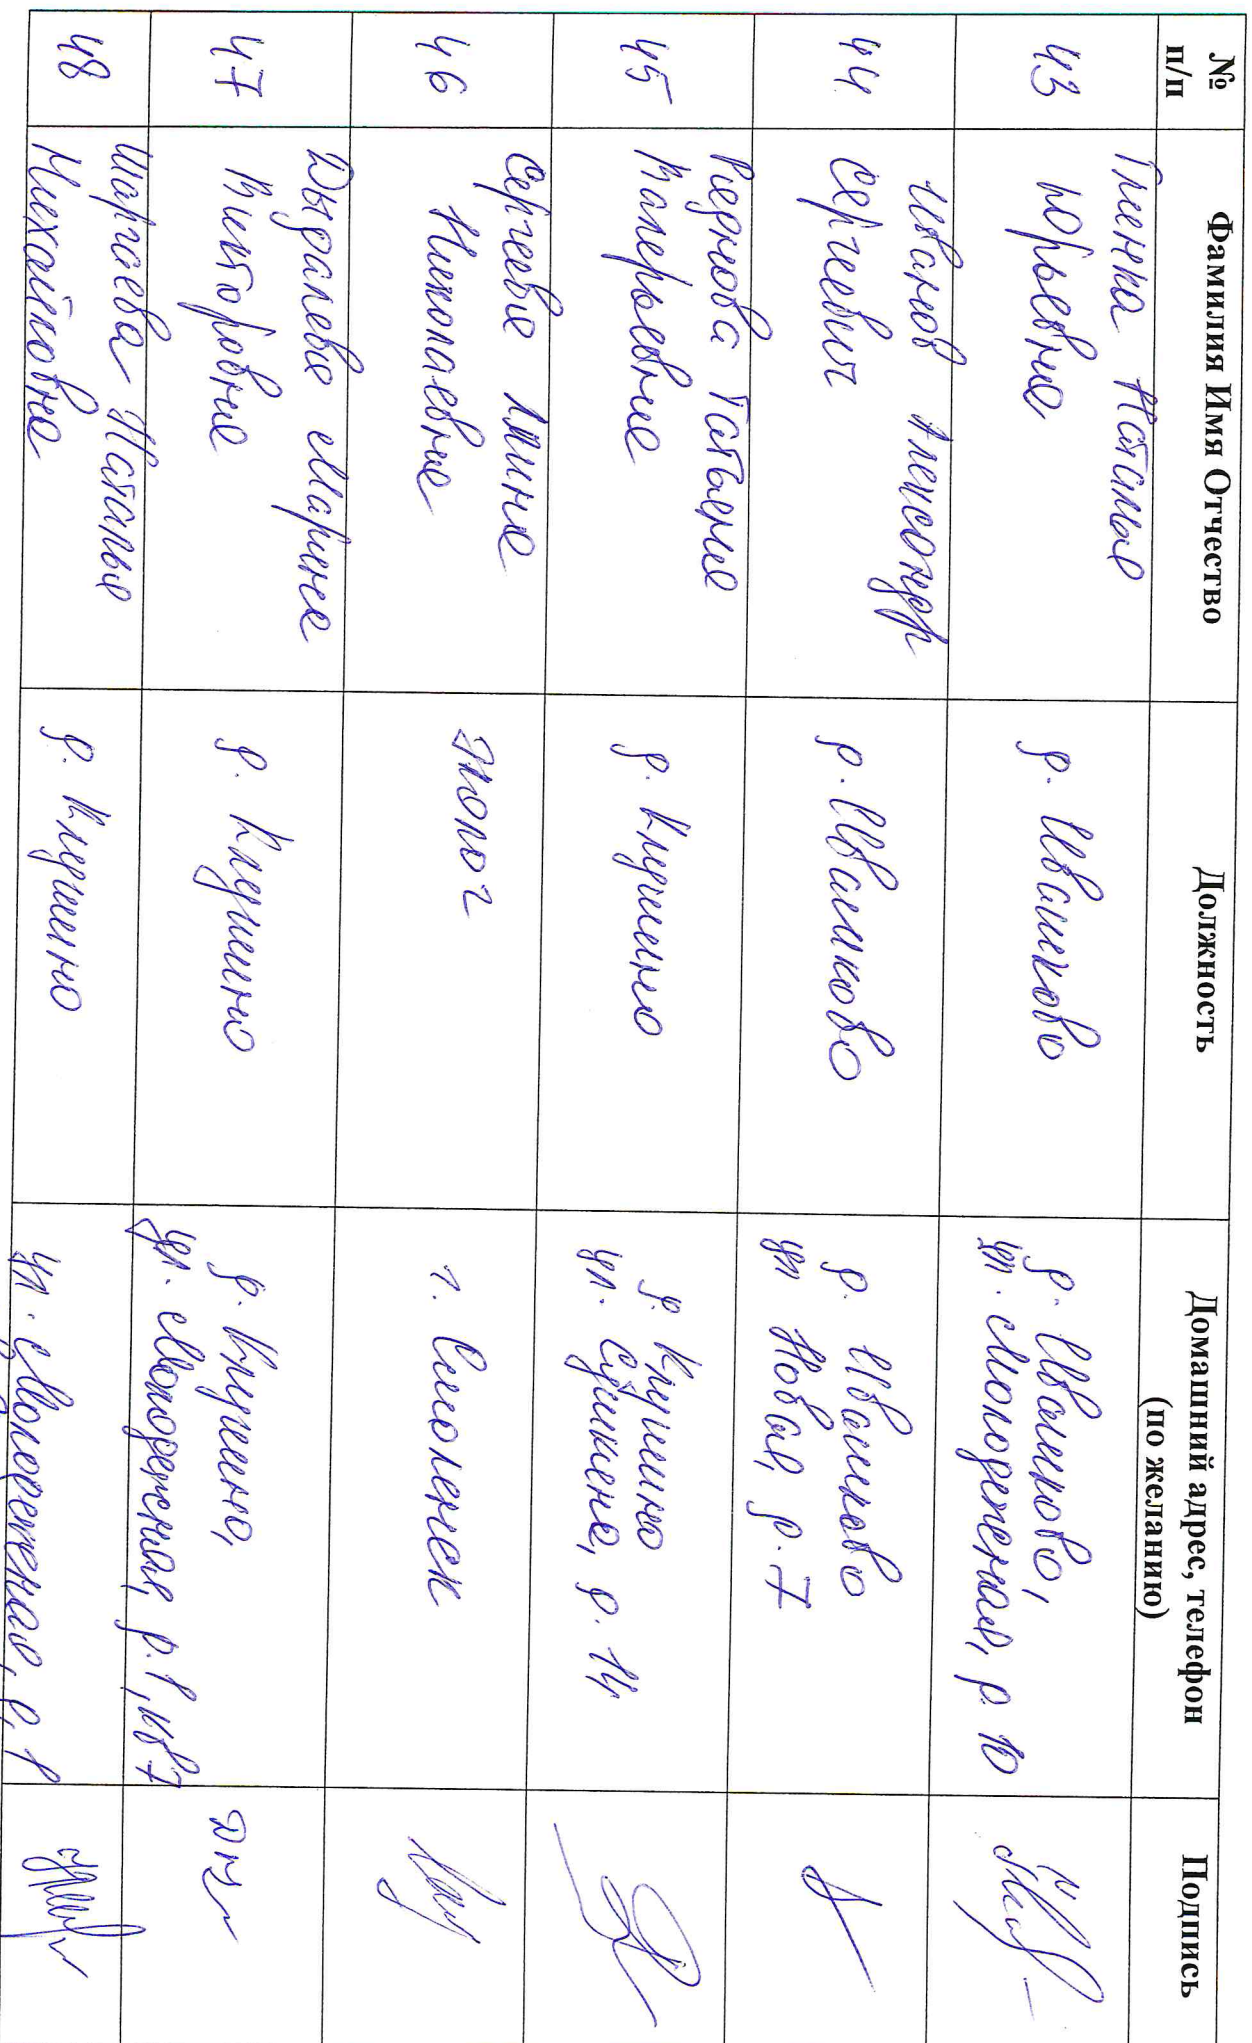 № п/п
Фамилия Имя Отчество
Должность
Домашний адрес, телефон
(по желанию)
Подпись
43
Глинка Наталья
Юрьевна
д. Ивашково
д. Ивашково,
ул. Молодежная, д. 10
44
Иванов Александр
Сергеевич
д. Ивашково
д. Ивашково
ул Новая, д. 7
45
Реднова Татьяна
Валерьевна
д. Клушино
д. Клушино
ул. Сушкина, д. 14
46
Сергеева Инна
Николаевна
эколог
г. Смоленск
47
Дыдалева Марина
Викторовна
д. Клушино
д. Клушино,
ул. Молодежная, д. 1, кв 7
48
Шаргаева Наталья
Михайловна
д. Клушино
ул. Молодежная, д. 1